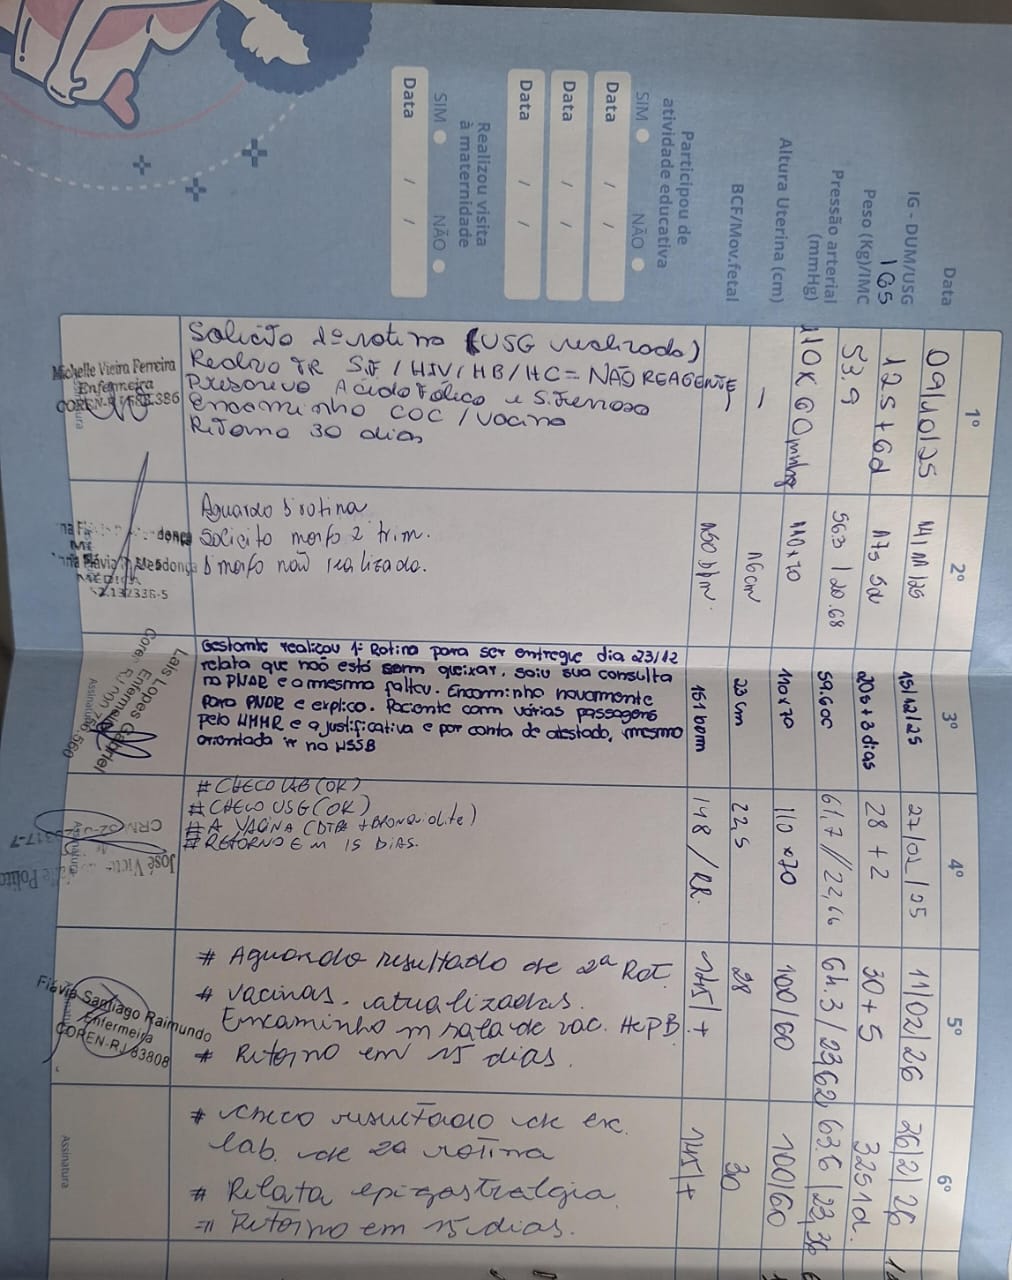 Data
IG - DUM/USG
Peso (Kg)/IMC
165
Pressão arterial
(mmHg)
Altura Uterina (cm)
BCF/Mov.fetal
Participou de
atividade educativa
SIM
NÃO
Data / /
Data / /
Data / /
Realizou visita
à maternidade
SIM
NÃO
Data / /
1º
09/10/25
12s + 6d
53.9
110 x 60 mmhg
-
-
Solicito 1ª rotina (USG realizada)
Realizo TR Sif / HIV / HB / HC = NÃO REAGENTE
Prescrevo Acido Fólico e S. Ferroso
Encaminho COC / Vacina
Retorno 30 dias
Michelle Vieira Ferreira
Enfermeira
2º
14/11/25
17s 5d
56.3 / 20.68
110 x 70
16cm
150 bpm.
Aguardo rotina.
Solicito morfo 2 trim.
morfo não realizado.
Flávia Mendonça
MÉDICA
52.137336-5
3º
15/12/25
20s + 3 dias
59.600
110 x 70
23 cm
151 bpm
Gestante realizou 1ª Rotina para ser entregue dia 23/12
relata que não está sem queixar, saiu sua consulta
no PNAR e a mesma faltou. Encaminho novamente
para PNAR e explico. Paciente com várias passagens
pelo HMMR e a justificativa e por conta de atestado, mesmo
orientada ir no HSSB
Lais Lopes Gabriel
Enfermeira
Assinatura
4º
27/01/05
28 + 2
61,7 // 22,66
110 x 70
22,5
148 / RR.
# CHECO LAB (OK)
# CHECO USG (OK)
# A VACINA (DTPA + BRONQUIOLITE)
# RETORNO EM 15 DIAS.
CRM
José
Assinatura
5º
11/02/26
30 + 5
64.3 / 23,62
100/60
28
145/+
# Aguardo resultado de 2ª Rot.
# Vacinas. atualizadas.
Encaminho m sala de vac. HepB.
# Retorno em 15 dias.
Flavia Santiago Raimundo
Enfermeira
COREN-RJ 83808
6º
26/2/26
32s 1d.
63.6 / 23,36
100/60
30
145/+
# Checo resultado de ex.
lab. de 2ª rotina
# Relata epigastralgia.
= Retorno em 15 dias.
Assinatura